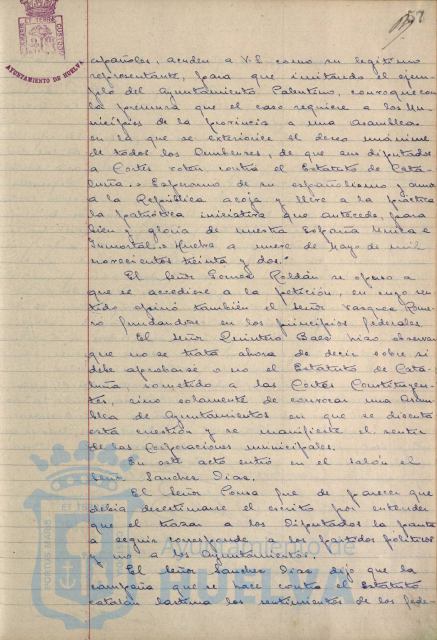 57
AYUNTAMIENTO DE HUELVA
españoles, acuden a V.E. como su legítimo
representante, para que imitando el ejem-
plo del Ayuntamiento Palentino, convoque con
la premura que el caso requiere a los Mu-
nicipios de la provincia a una Asamblea
en la que se exteriorice el deseo unánime
de todos los Onubenses, de que sus diputados
a Cortes voten contra el Estatuto de Cata-
luña.= Esperamos de su españolismo y amor
a la República acoja y lleve a la práctica
la patriótica iniciativa que antecede, para
bien y gloria de nuestra España Unica e
Inmortal.= Huelva a nueve de Mayo de mil
novecientos treinta y dos."
El Señor Gomez Roldán se opuso a
que se accediera a la petición, en cuyo sen-
tido opinó también el Señor Vazquez Rome-
ro fundandose en los principios federales.
El Señor Quintero Baez hizo observar
que no se trata ahora de decir sobre si
debe aprobarse o no el Estatuto de Cata-
luña, sometido a las Cortes Constituyen-
tes, sino solamente de convocar una Asam-
blea de Ayuntamientos en que se discuta
esta cuestión y se manifieste el sentir
de las Corporaciones municipales.
En este acto entró en el salón el
Señor Sanchez Diaz.
El Señor Ponsa fue de parecer que
debía desestimarse el escrito por entender
que el trazar a los Diputados la pauta
a seguir corresponde a los partidos políticos
y no a los Ayuntamientos.
El Señor Sanchez Diaz dijo que la
campaña que se hace contra el Estatuto
catalán lastima los sentimientos de los fede-
Ayuntamiento de
HUELVA